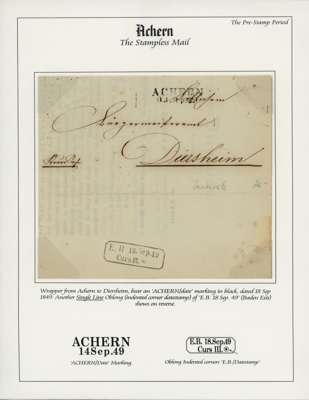 The Pre-Stamp Period
Achern
The Stampless Mail
ACHERN
Bürgermeisteramt
Diersheim
E.B. 18. Sep. 49
Curs III.
Wrapper from Achern to Diersheim, bear an 'ACHERN/date' marking in black, dated 18 Sep
1849. Another Single Line Oblong (indented corner datestamp) of 'E.B. 18 Sep. 49' (Baden Esb)
shows on reverse.
ACHERN
14Sep.49
'ACHERN/Date' Marking
E.B. 18.Sep.49
Curs III.
Oblong Indented corner 'E.B./Datestamp'